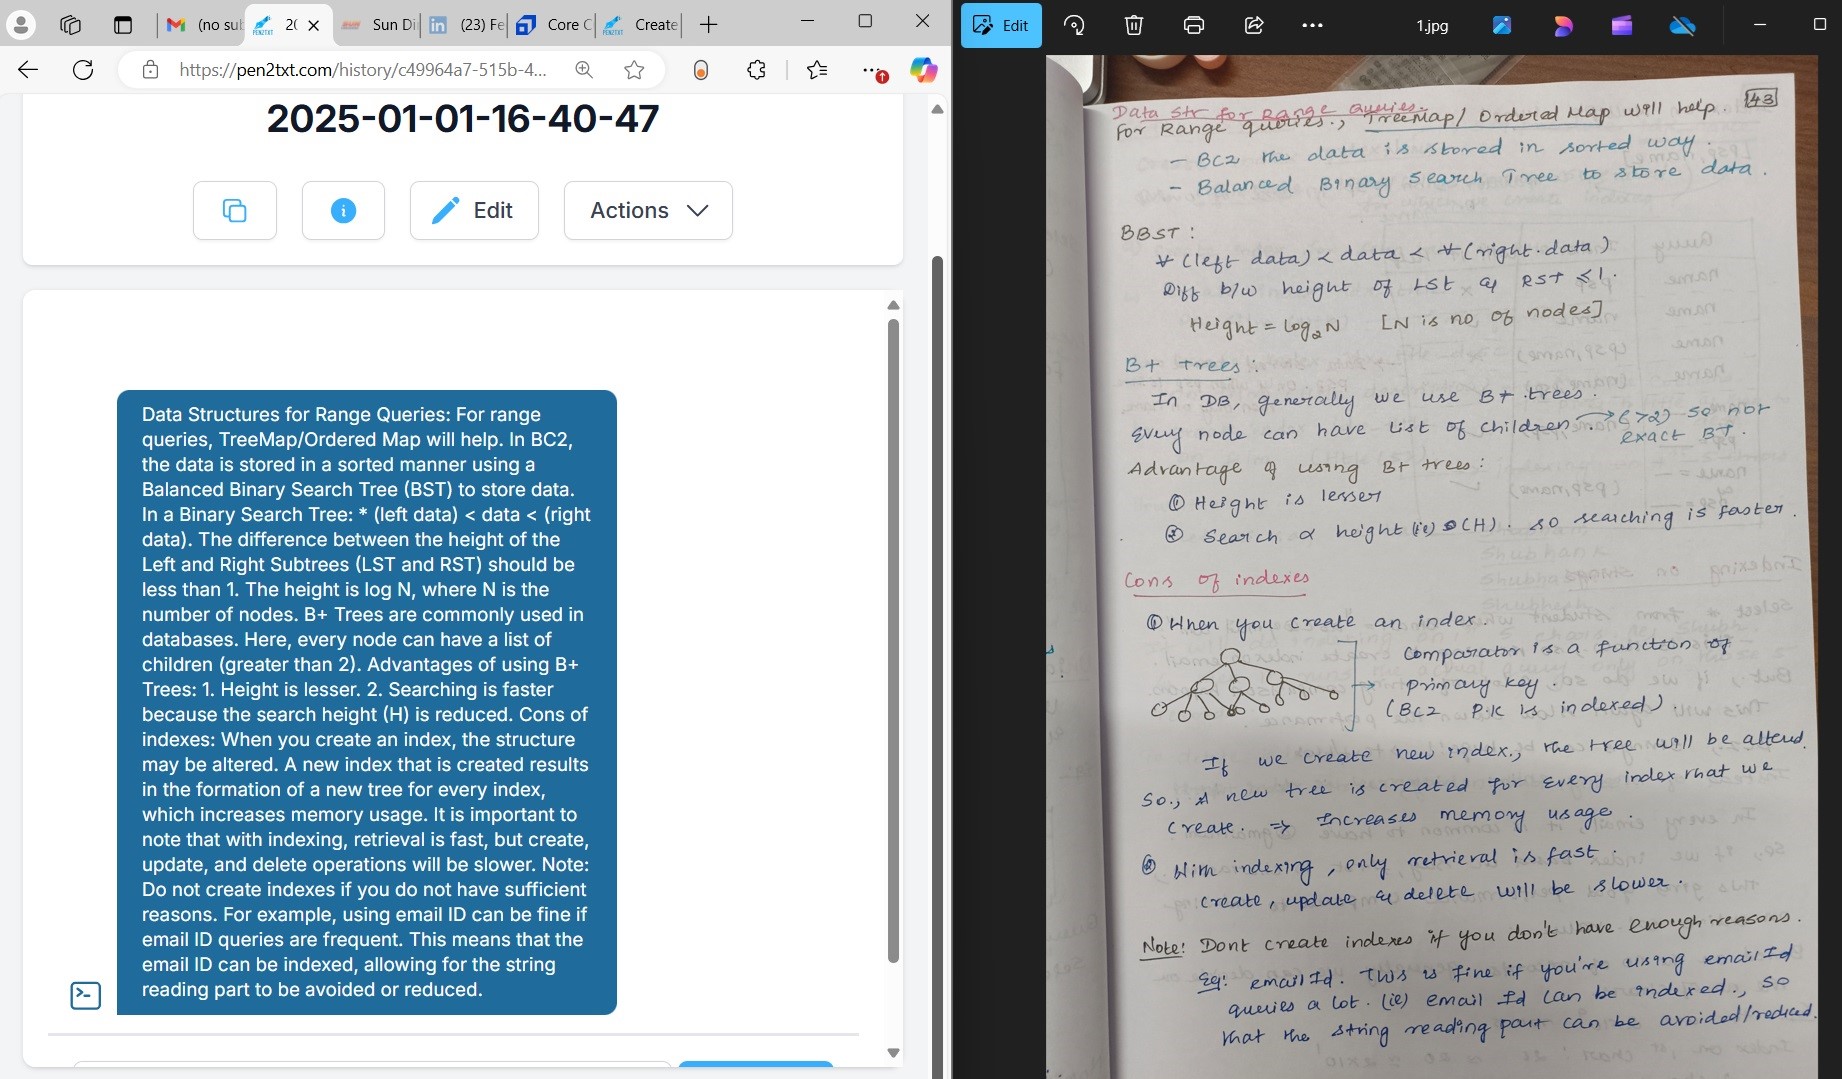 (no su
2(
Sun Di
(23) Fe
Core C
Create
https://pen2txt.com/history/c49964a7-515b-4...
2025-01-01-16-40-47
Edit
Actions
Data Structures for Range Queries: For range
queries, TreeMap/Ordered Map will help. In BC2,
the data is stored in a sorted manner using a
Balanced Binary Search Tree (BST) to store data.
In a Binary Search Tree: * (left data) < data < (right
data). The difference between the height of the
Left and Right Subtrees (LST and RST) should be
less than 1. The height is log N, where N is the
number of nodes. B+ Trees are commonly used in
databases. Here, every node can have a list of
children (greater than 2). Advantages of using B+
Trees: 1. Height is lesser. 2. Searching is faster
because the search height (H) is reduced. Cons of
indexes: When you create an index, the structure
may be altered. A new index that is created results
in the formation of a new tree for every index,
which increases memory usage. It is important to
note that with indexing, retrieval is fast, but create,
update, and delete operations will be slower. Note:
Do not create indexes if you do not have sufficient
reasons. For example, using email ID can be fine if
email ID queries are frequent. This means that the
email ID can be indexed, allowing for the string
reading part to be avoided or reduced.
Edit
1.jpg
43
Data Str for Range Queries.
For Range queries., TreeMap/ Ordered Map will help.
- BCZ the data is stored in sorted way.
- Balanced Binary Search Tree to store data.
BBST :
∀ (left data) < data < ∀ (right.data)
Diff b/w height of LST & RST ≤ 1.
Height = log₂N [N is no of nodes]
B+ Trees :
In DB, generally we use B+ trees.
Every node can have list of children. → (>2) so not
exact BT.
Advantage of using B+ trees :
① Height is lesser
② Search α height (ie) O(H). so searching is faster.
Cons of indexes
① When you create an index.
Comparator is a function of
primary key.
(BCZ P.K is indexed).
If we create new index., the tree will be altered.
So., A new tree is created for every index that we
create. => Increases memory usage.
② With indexing, only retrieval is fast.
create, update & delete will be slower.
Note: Dont create indexes if you don't have enough reasons.
Eg: email Id. This is fine if you're using email Id
queries a lot. (ie) email Id can be indexed., so
that the string reading part can be avoided/reduced.